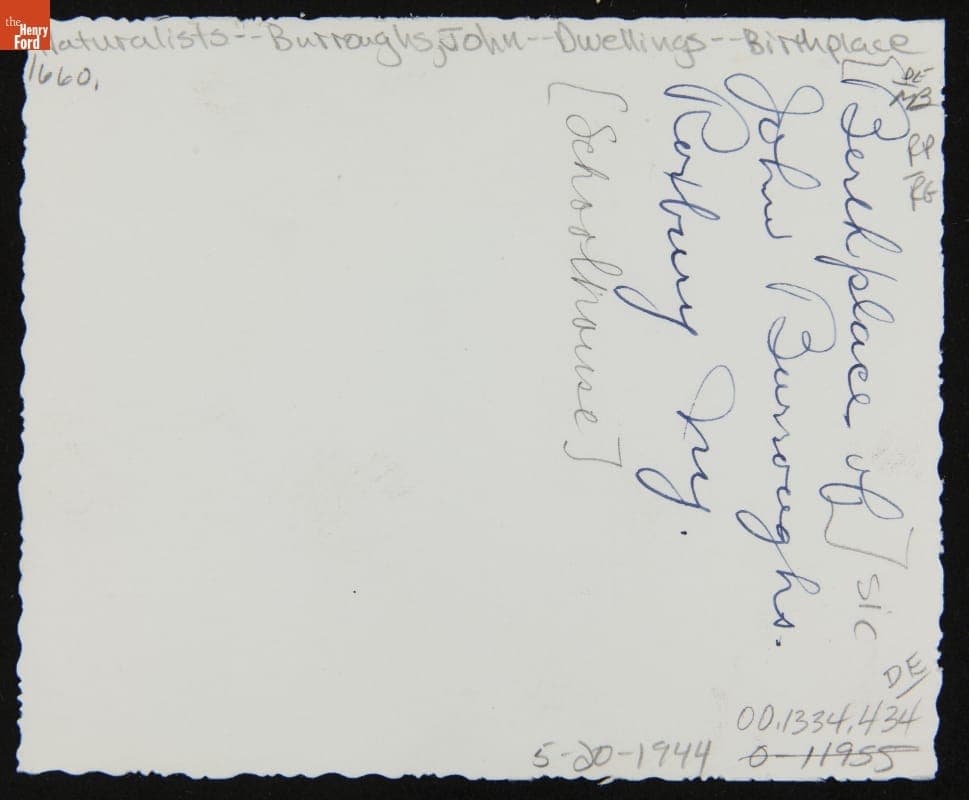 the
Henry
Ford
Naturalists--Burroughs, John--Dwellings--Birthplace
1660.
DE
MB
RP
RG
[Birthplace of] sic
John Burroughs.
Roxbury Ny.
[Schoolhouse]
DE/
00.1334.434
5-20-1944 0-11955